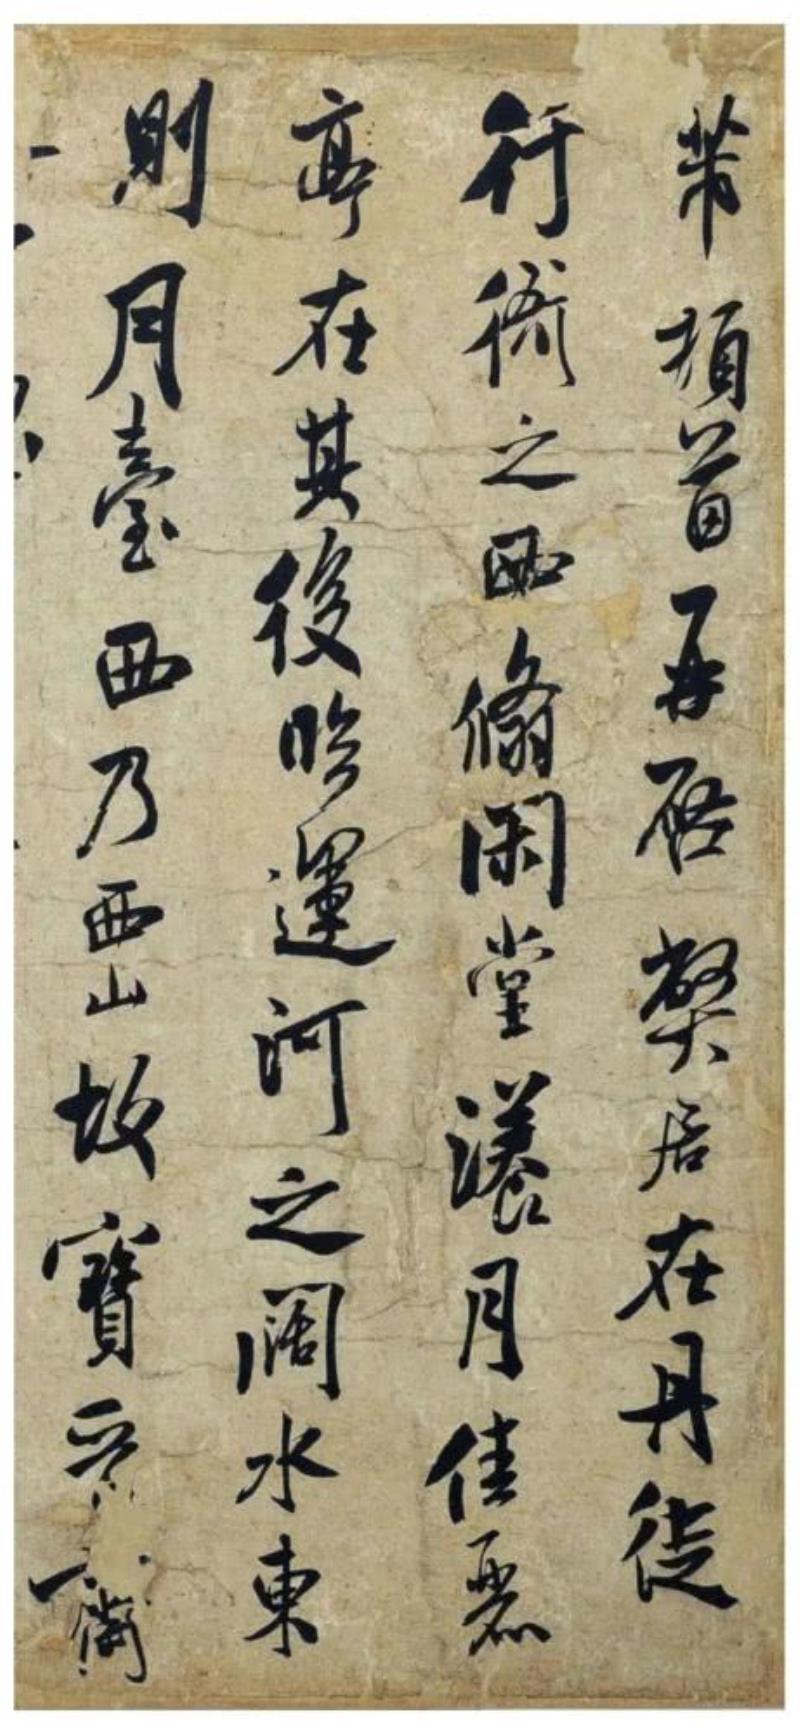 芾頓首再啓弊居在丹徒
行衙之西翛閑堂瀁月佳麗
亭在其後臨運河之闊水東
則月臺西乃西山故寶晉